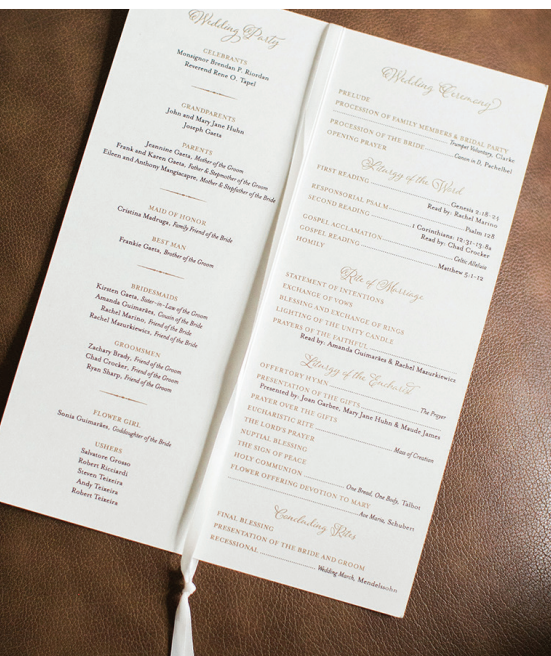 Wedding Party
CELEBRANTS
Monsignor Brendan P. Riordan
Reverend Rene O. Tapel
GRANDPARENTS
John and Mary Jane Huhn
Joseph Gaeta
PARENTS
Jeannine Gaeta, Mother of the Groom
Frank and Karen Gaeta, Father & Stepmother of the Groom
Eileen and Anthony Mangiacapre, Mother & Stepfather of the Bride
MAID OF HONOR
Cristina Madruga, Family Friend of the Bride
BEST MAN
Frankie Gaeta, Brother of the Groom
BRIDESMAIDS
Kirsten Gaeta, Sister-in-Law of the Groom
Amanda Guimarães, Cousin of the Bride
Rachel Marino, Friend of the Bride
Rachel Mazurkiewicz, Friend of the Bride
GROOMSMEN
Zachary Brady, Friend of the Groom
Chad Crocker, Friend of the Groom
Ryan Sharp, Friend of the Groom
FLOWER GIRL
Sonia Guimarães, Goddaughter of the Bride
USHERS
Salvatore Grosso
Robert Ricciardi
Steven Teixeira
Andy Teixeira
Robert Teixeira
Wedding Ceremony
PRELUDE
PROCESSION OF FAMILY MEMBERS & BRIDAL PARTY
Trumpet Voluntary, Clarke
PROCESSION OF THE BRIDE Canon in D, Pachelbel
OPENING PRAYER
Liturgy of the Word
FIRST READING Genesis 2:18-24
Read by: Rachel Marino
RESPONSORIAL PSALM Psalm 128
SECOND READING 1 Corinthians: 12:31-13:8a
Read by: Chad Crocker
GOSPEL ACCLAMATION Celtic Alleluia
GOSPEL READING Matthew 5:1-12
HOMILY
Rite of Marriage
STATEMENT OF INTENTIONS
EXCHANGE OF VOWS
BLESSING AND EXCHANGE OF RINGS
LIGHTING OF THE UNITY CANDLE
PRAYERS OF THE FAITHFUL
Read by: Amanda Guimarães & Rachel Mazurkiewicz
Liturgy of the Eucharist
OFFERTORY HYMN The Prayer
PRESENTATION OF THE GIFTS
Presented by: Joan Garbee, Mary Jane Huhn & Maude James
PRAYER OVER THE GIFTS
EUCHARISTIC RITE Mass of Creation
THE LORD'S PRAYER
NUPTIAL BLESSING
THE SIGN OF PEACE
HOLY COMMUNION One Bread, One Body, Talbot
FLOWER OFFERING DEVOTION TO MARY
Ave Maria, Schubert
Concluding Rites
FINAL BLESSING
PRESENTATION OF THE BRIDE AND GROOM
RECESSIONAL Wedding March, Mendelssohn